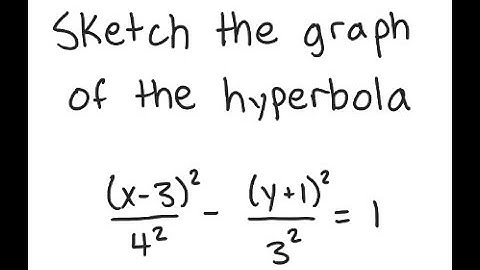 Sketch the graph
of the hyperbola
(x-3)²/4² - (y+1)²/3² = 1